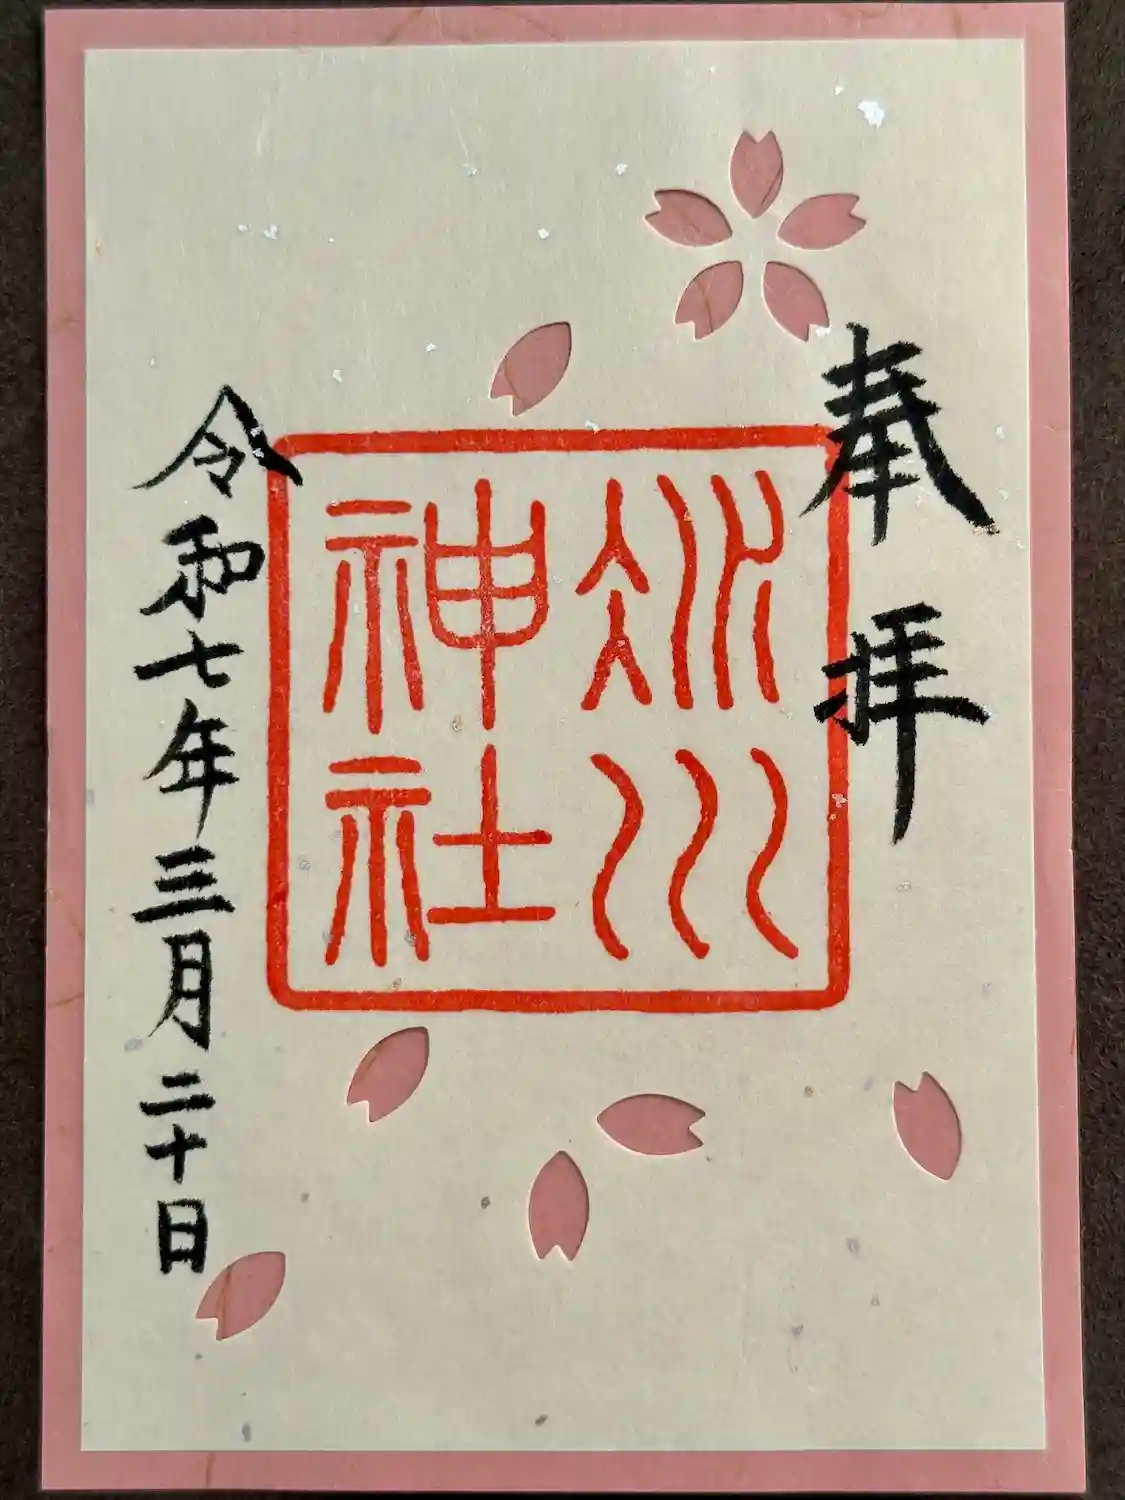 奉拝
氷川
神社
令和七年三月二十日